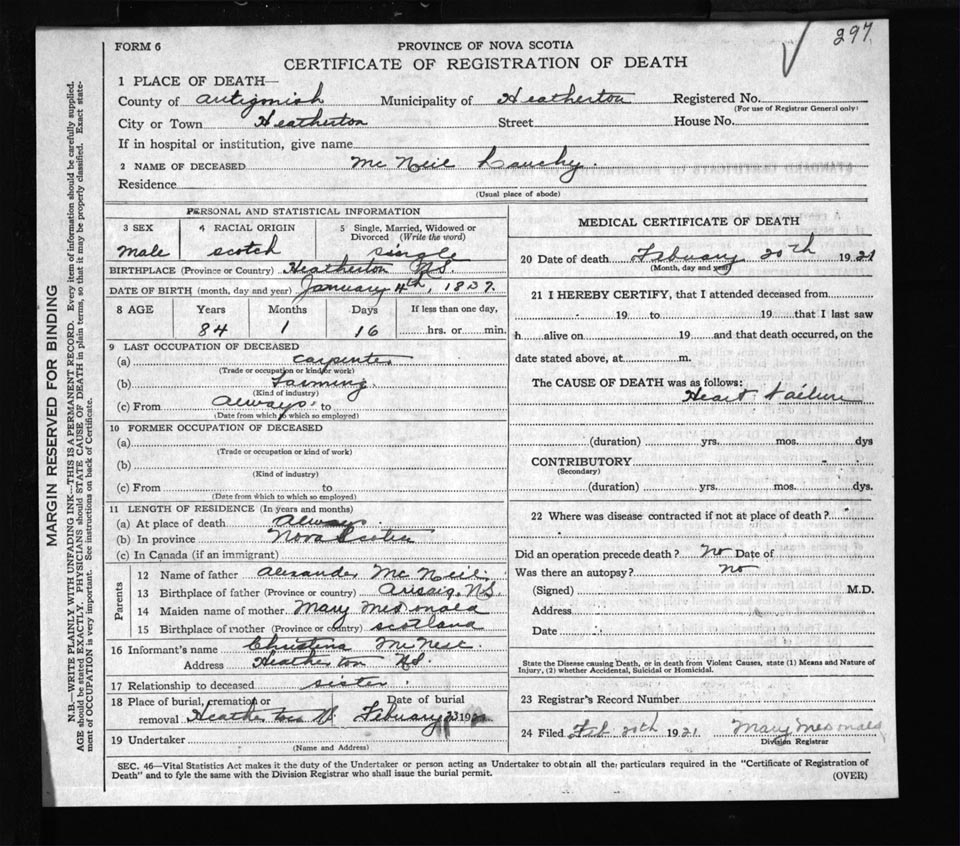 297
FORM 6
PROVINCE OF NOVA SCOTIA
CERTIFICATE OF REGISTRATION OF DEATH
1 PLACE OF DEATH—
County of Antigonish Municipality of Heatherton Registered No.
(For use of Registrar General only)
City or Town Heatherton Street House No.
If in hospital or institution, give name
2 NAME OF DECEASED McNeil Lauchy.
Residence
(Usual place of abode)
MARGIN RESERVED FOR BINDING
N.B.—WRITE PLAINLY WITH UNFADING INK—THIS IS A PERMANENT RECORD. Every item of information should be carefully supplied.
AGE should be stated EXACTLY. PHYSICIANS should STATE CAUSE OF DEATH in plain terms, so that it may be properly classified. Exact state-
ment of OCCUPATION is very important. See instructions on back of Certificate.
PERSONAL AND STATISTICAL INFORMATION
3 SEX 4 RACIAL ORIGIN 5 Single, Married, Widowed or
Divorced (Write the word)
Male scotch single
BIRTHPLACE (Province or Country) Heatherton N.S.
DATE OF BIRTH (month, day and year) January 4th, 1837.
8 AGE Years Months Days If less than one day,
84 1 16 hrs. or min.
9 LAST OCCUPATION OF DECEASED
(a) carpenter
(Trade or occupation or kind of work)
(b) Farming.
(Kind of industry)
(c) From Always to
(Date from which to which so employed)
10 FORMER OCCUPATION OF DECEASED
(a)
(Trade or occupation or kind of work)
(b)
(Kind of industry)
(c) From to
(Date from which to which so employed)
11 LENGTH OF RESIDENCE (In years and months)
(a) At place of death Always
(b) In province Nova Scotia
(c) In Canada (if an immigrant)
Parents
12 Name of father Alexander McNeil.
13 Birthplace of father (Province or country) Arisaig, N.S.
14 Maiden name of mother Mary McDonald
15 Birthplace of mother (Province or country) scotland
16 Informant's name Christina McNeil.
Address Heatherton N.S.
17 Relationship to deceased sister.
18 Place of burial, cremation or Date of burial
removal Heatherton N. Febuary 1921
19 Undertaker
(Name and Address)
MEDICAL CERTIFICATE OF DEATH
20 Date of death Febuary 20th 1921
(Month, day and year)
21 I HEREBY CERTIFY, that I attended deceased from
19 to 19 that I last saw
h alive on 19 and that death occurred, on the
date stated above, at m.
The CAUSE OF DEATH was as follows:
Heart Failure
(duration) yrs. mos. dys
CONTRIBUTORY
(Secondary)
(duration) yrs. mos. dys.
22 Where was disease contracted if not at place of death?
Did an operation precede death? No Date of
Was there an autopsy? No
(Signed) M.D.
Address
Date
State the Disease causing Death, or in death from Violent Causes, state (1) Means and Nature of
Injury, (2) whether Accidental, Suicidal or Homicidal.
23 Registrar's Record Number
24 Filed Feb 20th 1921. Mary McDonald
Division Registrar
SEC. 46—Vital Statistics Act makes it the duty of the Undertaker or person acting as Undertaker to obtain all the particulars required in the "Certificate of Registration of
Death" and to fyle the same with the Division Registrar who shall issue the burial permit.
(OVER)